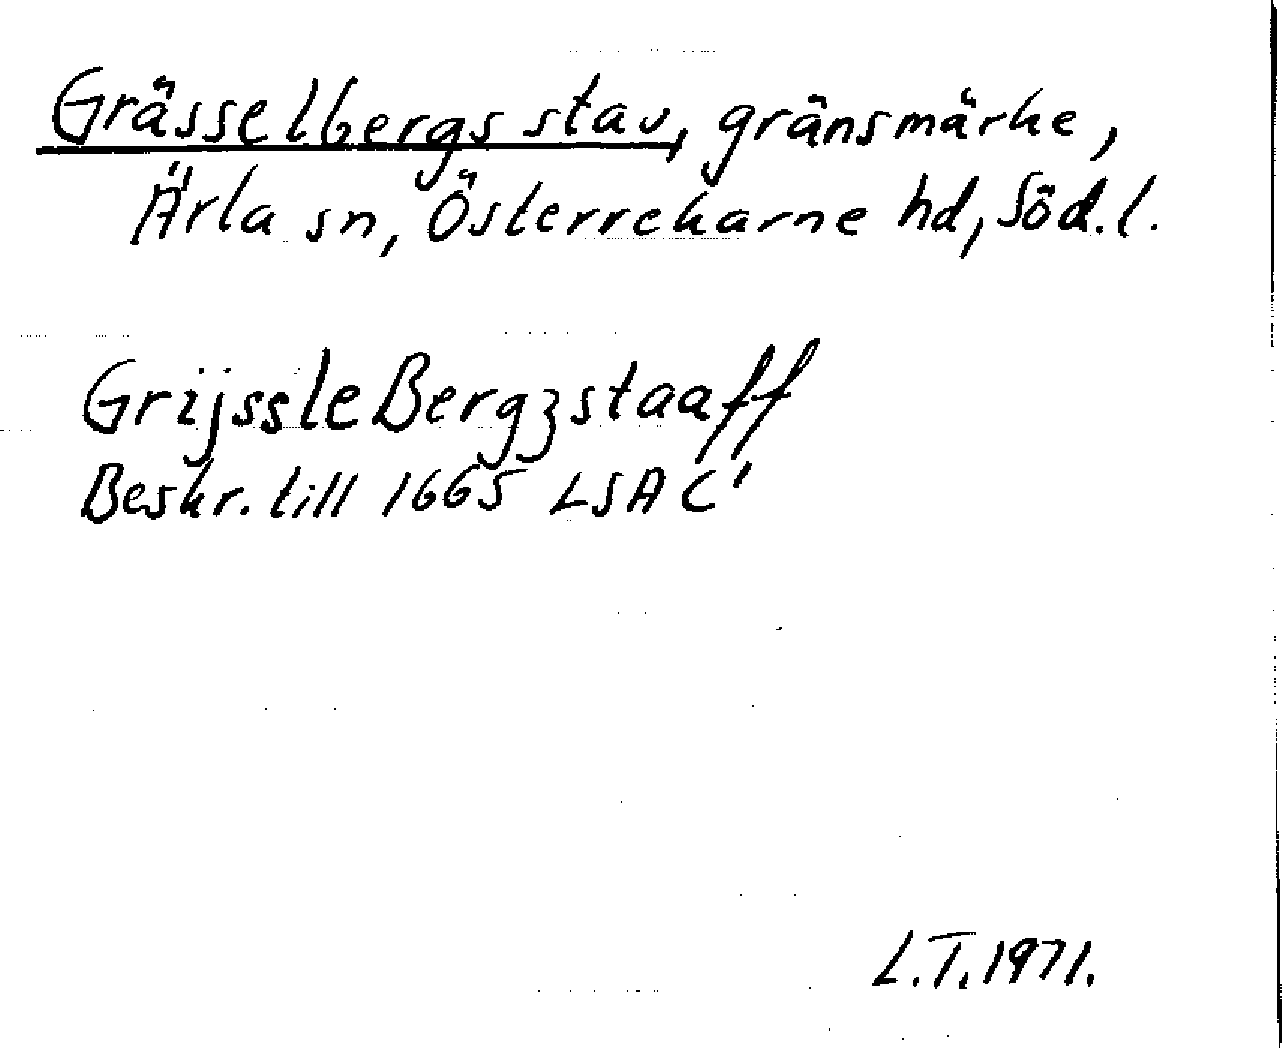 Grässelbergs stav, gränsmärke,
Ärla sn, Österrekarne hd, Söd.l.
GrijssleBergzstaaff
Beskr. till 1665 LSA C'
L.T. 1971.